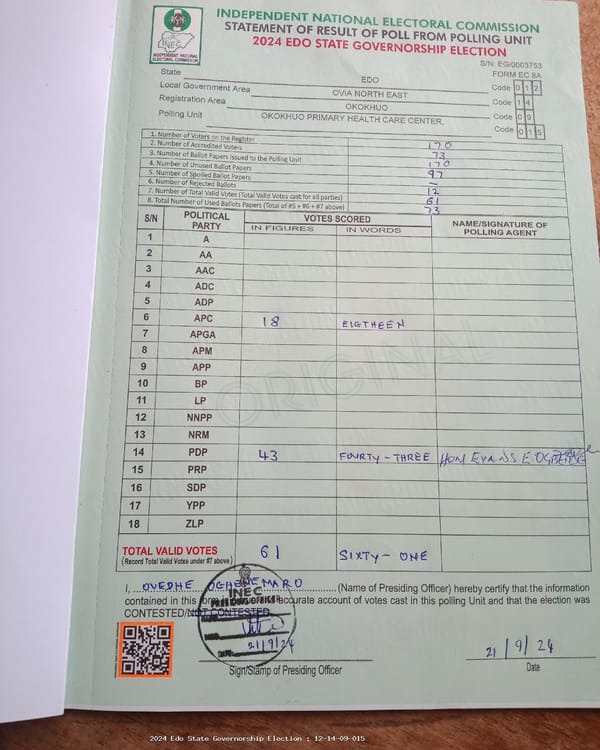 INDEPENDENT NATIONAL ELECTORAL COMMISSION
STATEMENT OF RESULT OF POLL FROM POLLING UNIT
2024 EDO STATE GOVERNORSHIP ELECTION
INEC
INDEPENDENT NATIONAL
ELECTORAL COMMISSION
S/N: EG/0003753
FORM EC 8A
State EDO Code 0 1 2
Local Government Area OVIA NORTH EAST Code 1 4
Registration Area OKOKHUO Code 0 9
Polling Unit OKOKHUO PRIMARY HEALTH CARE CENTER, Code 0 1 5
1. Number of Voters on the Register 170
2. Number of Accredited Voters 73
3. Number of Ballot Papers Issued to the Polling Unit 170
4. Number of Unused Ballot Papers 97
5. Number of Spoiled Ballot Papers –
6. Number of Rejected Ballots 12
7. Number of Total Valid Votes (Total Valid Votes cast for all parties) 61
8. Total Number of Used Ballots Papers (Total of #5 + #6 + #7 above) 73
S/N POLITICAL PARTY VOTES SCORED NAME/SIGNATURE OF POLLING AGENT
IN FIGURES IN WORDS
1 A
2 AA
3 AAC
4 ADC
5 ADP
6 APC 18 EIGTHEEN
7 APGA
8 APM
9 APP
10 BP
11 LP
12 NNPP
13 NRM
14 PDP 43 FOURTY-THREE HON EVANS E.
15 PRP
16 SDP
17 YPP
18 ZLP
ORIGINAL
TOTAL VALID VOTES 61 SIXTY-ONE
(Record Total Valid Votes under #7 above)
I, OVEDHE OGHENEMARO (Name of Presiding Officer) hereby certify that the information
contained in this form is a accurate account of votes cast in this polling Unit and that the election was
CONTESTED/NOT CONTESTED
INEC
PRESIDING OFFICER
21/9/24
21/9/24
Sign/Stamp of Presiding Officer Date
2024 Edo State Governorship Election : 12-14-09-015